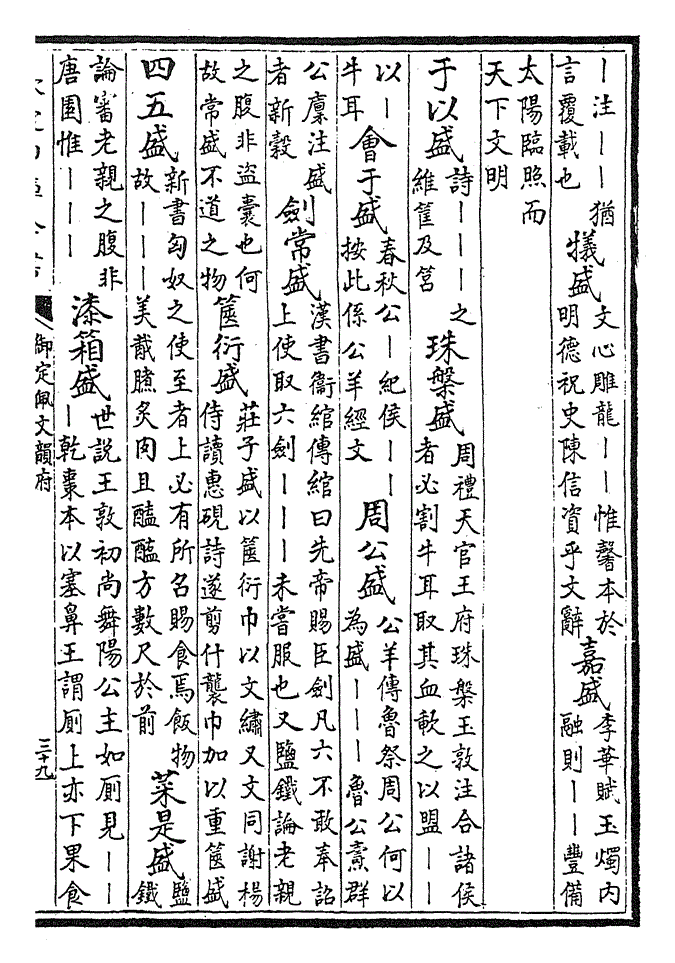 ｜注｜｜猶
言覆載也
犧盛
文心雕龍｜｜惟馨本於
明德祝史陳信資乎文辭
嘉盛
李華賦玉燭内
融則｜｜豐備
太陽臨照而
天下文明
于以盛
詩｜｜｜之
維筐及筥
珠槃盛
周禮天官王府珠槃玉敦注合諸侯
者必割牛耳取其血歃之以盟｜｜
以｜
牛耳
會于盛
春秋公｜紀侯｜｜
按此係公羊經文
周公盛
公羊傳魯祭周公何以
為盛｜｜｜魯公燾群
公廩注盛
者新穀
劍常盛
漢書衛綰傳綰曰先帝賜臣劍凡六不敢奉詔
上使取六劍｜｜｜未嘗服也又鹽鐵論老親
之腹非盜囊也何
故常盛不道之物
篋衍盛
莊子盛以篋衍巾以文繡又文同謝楊
侍讀惠硯詩遂剪什襲巾加以重篋盛
四五盛
新書匈奴之使至者上必有所召賜食焉飯物
故｜｜｜美胾臛炙肉且醯醢方數尺於前
菜是盛
鹽
鐵
論審老親之腹非
唐園惟｜｜｜
漆箱盛
世説王敦初尚舞陽公主如厠見｜｜
｜乾棗本以塞鼻王謂厠上亦下果食
御定佩文韻府
三十九